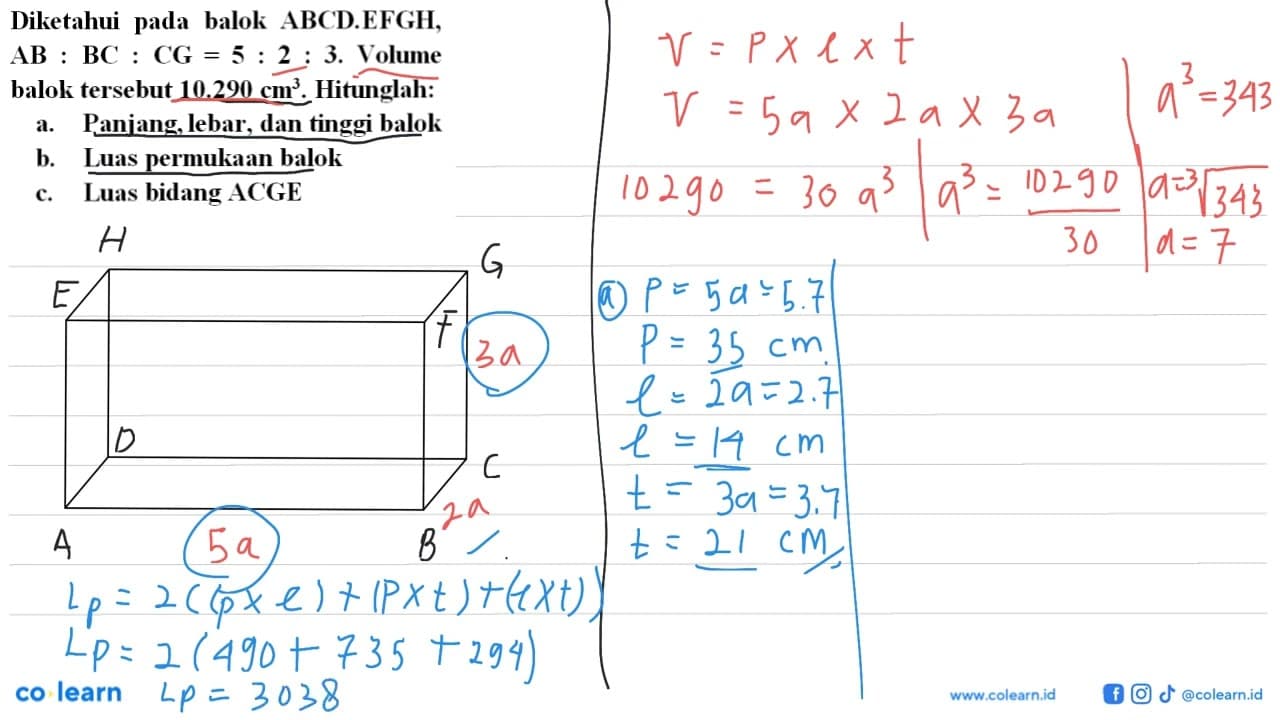 Diketahui pada balok ABCD.EFGH,
AB : BC : CG = 5 : 2 : 3. Volume
balok tersebut 10.290 cm³. Hitunglah:
a. Panjang, lebar, dan tinggi balok
b. Luas permukaan balok
c. Luas bidang ACGE
H
G
E
F
3a
D
C
2a
A
5a
B
Lp = 2((p x l) + (p x t) + (l x t))
Lp = 2(490 + 735 + 294)
Lp = 3038
V = P x l x t
V = 5a x 2a x 3a
10290 = 30 a³
a³ = 10290
30
a³ = 343
a = ³√343
a = 7
a P = 5a = 5.7
P = 35 cm.
l = 2a = 2.7
l = 14 cm
t = 3a = 3.7
t = 21 cm
co learn
www.colearn.id
@colearn.id